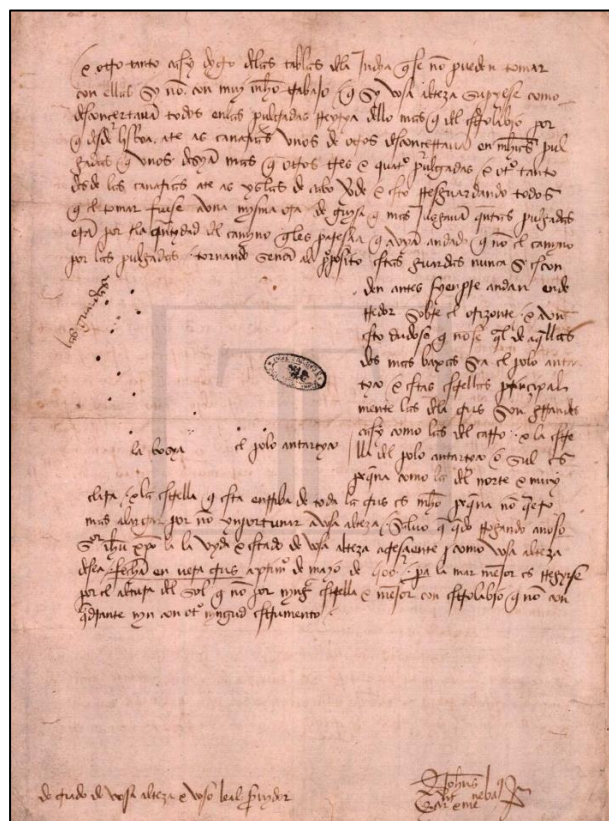 e otro tanto casy digo de las tablas de la India q se non pueden tomar
con ellas sy non con muy mucho trabajo q sy vosa alteza supyese como
desconçertavan todos en las pulgadas reyrya dello mas q del estrolabio por
q desde lisboa ate as canarias unos de otros desconçertavan en muchas pul
gadas q unos desyan mas q otros tres e quatro pulgadas e otro tanto
desde las canarias ate as yslas de cabo verde e esto resguardando todos
q el tomar fuese a una mysma ora de guysa q mas jusgavan quantas pulgadas
eran por la quantydad del camyno q les paresçia q avyan andado q non el camyno
por las pulgadas tornando senor al proposito estas guardas nunca se escon
den antes syenpre andan en de
rredor sobre el orizonte e aun
esto dudoso q no se qual de aquellas
dos mas baxas sea el polo antar
tyco e estas estrellas principal
mente las de la crus son grandes
casy como las del carro e la estre
lla del polo antartyco o sul es
pequena como la del norte e muy
las guardas
la bosya
el polo antartyco
clara e la estrella q esta en rriba de toda la crus es mucho pequena non quero
mas alargar por non ynportunar a vosa alteza salvo q quedo rogando a noso
senor ihu xpo la la vyda e estado de vosa alteza acresiente como vosa alteza
desea fecha en vera crus a primero de mayo de 500 pa la mar mejor es regyrse
por el altura del sol q non por nynguna estrella e mejor con estrolabio q non con
quadrante nyn con otro nyngud estrumento
do criado de vosa alteza e voso leal servydor
Johanes